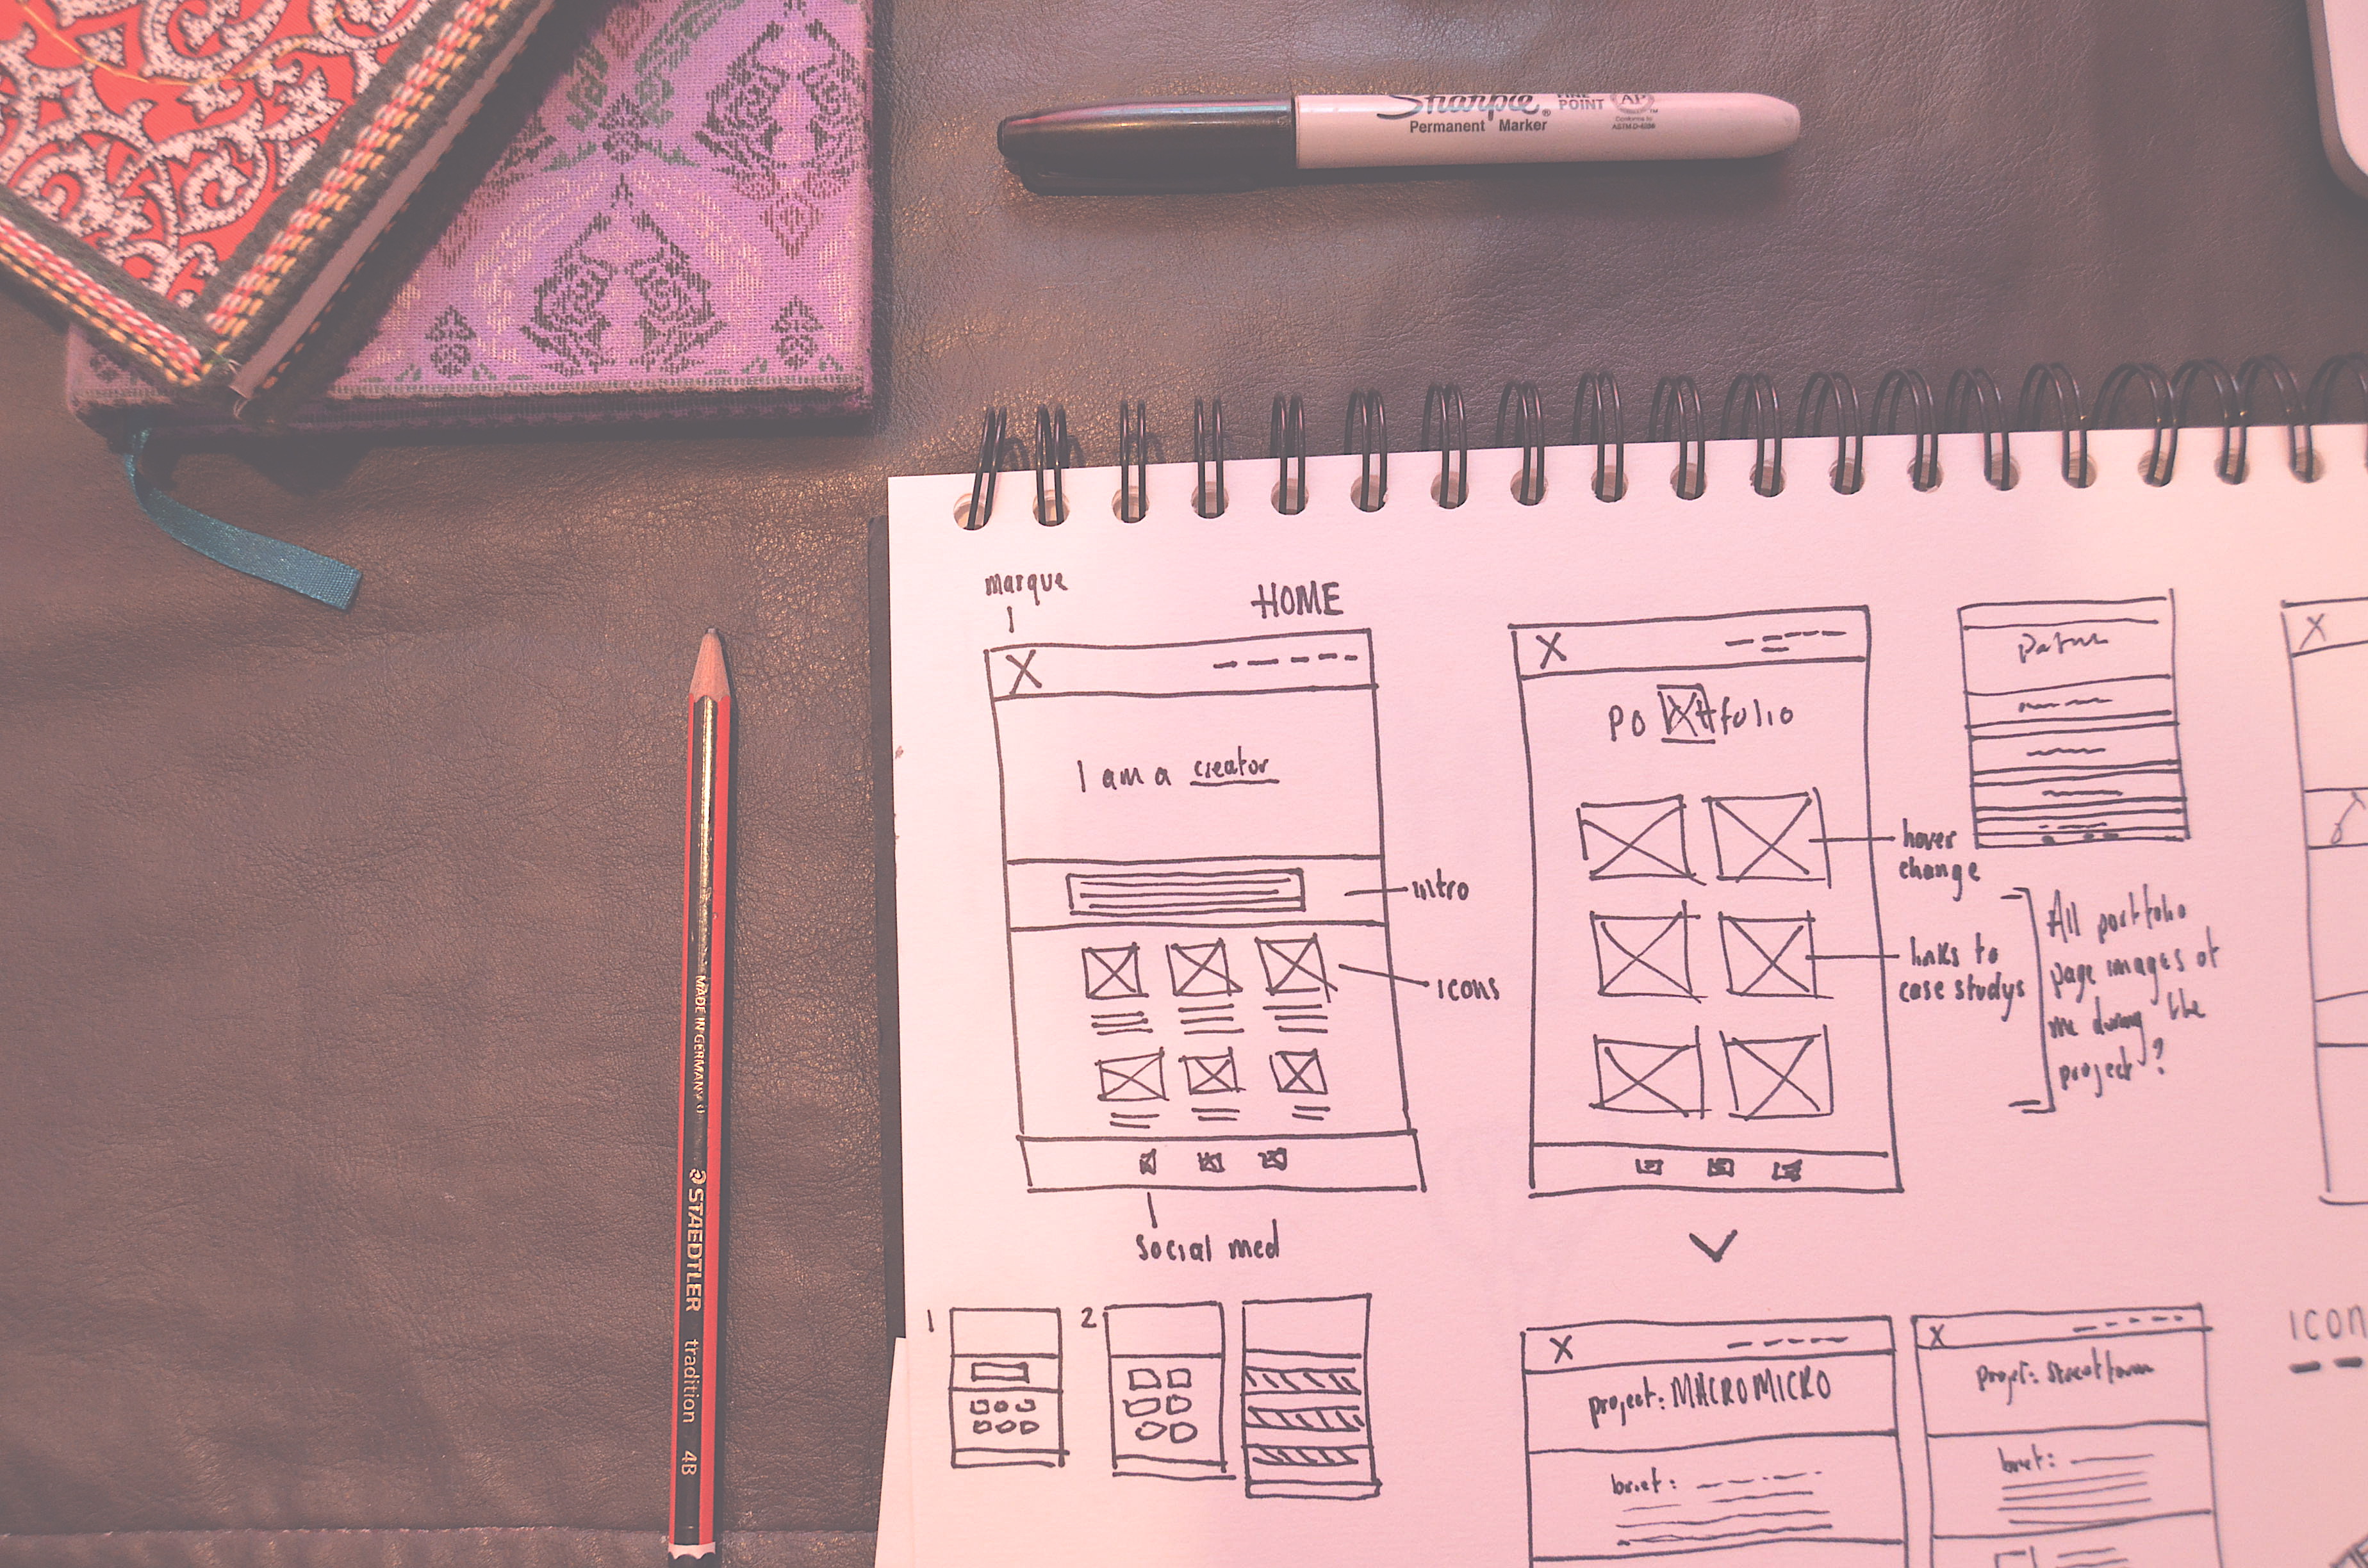 Sharpie® FINE POINT AP
Permanent Marker
Conforms to
ASTM D-4236
MADE IN GERMANY
STAEDTLER tradition 4B
marque
HOME
X
I am a creator
intro
icons
social med
X
Portfolio
hover
change
links to
case studys
All portfolio
page images of
me during the
project?
X
1
2
X
project: MACROMICRO
brief:
X
brief:
icon